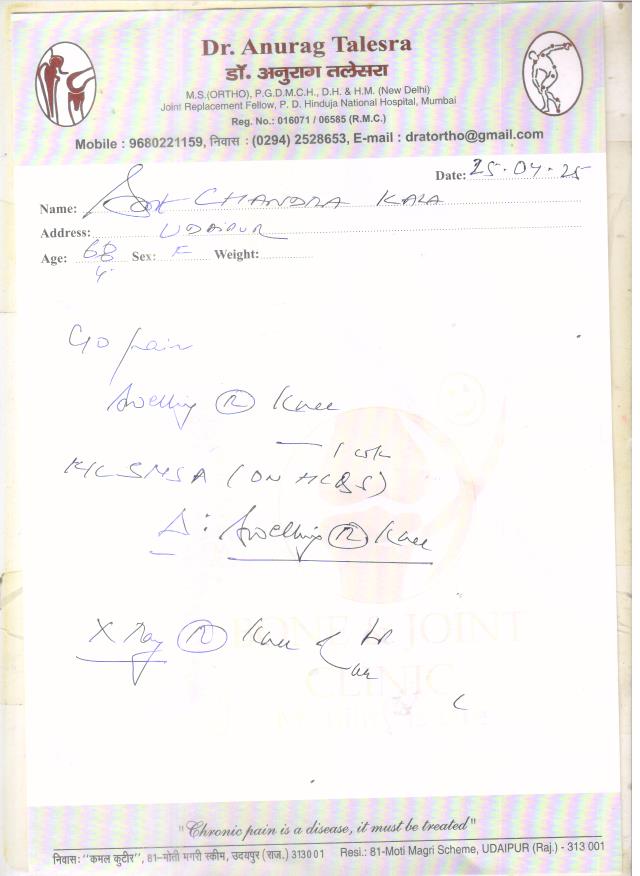 Dr. Anurag Talesra
डॉ. अनुराग तलेसरा
M.S.(ORTHO), P.G.D.M.C.H., D.H. & H.M. (New Delhi)
Joint Replacement Fellow, P. D. Hinduja National Hospital, Mumbai
Reg. No.: 016071 / 06585 (R.M.C.)
Mobile : 9680221159, निवास : (0294) 2528653, E-mail : dratortho@gmail.com
Date: 25.04.25
Name: Smt CHANDRA KALA
Address: UDAIPUR
Age: 68 y Sex: F Weight:
C/O pain
Swelling (R) Knee
1 wk
(ON HCQS)
Δ: Swelling (R) Knee
X Ray (R) Knee
BONE & JOINT
CLINIC
"Chronic pain is a disease, it must be treated"
निवास: "कमल कुटीर", 81-मोती मगरी स्कीम, उदयपुर (राज.) 313001 Resi.: 81-Moti Magri Scheme, UDAIPUR (Raj.) - 313 001